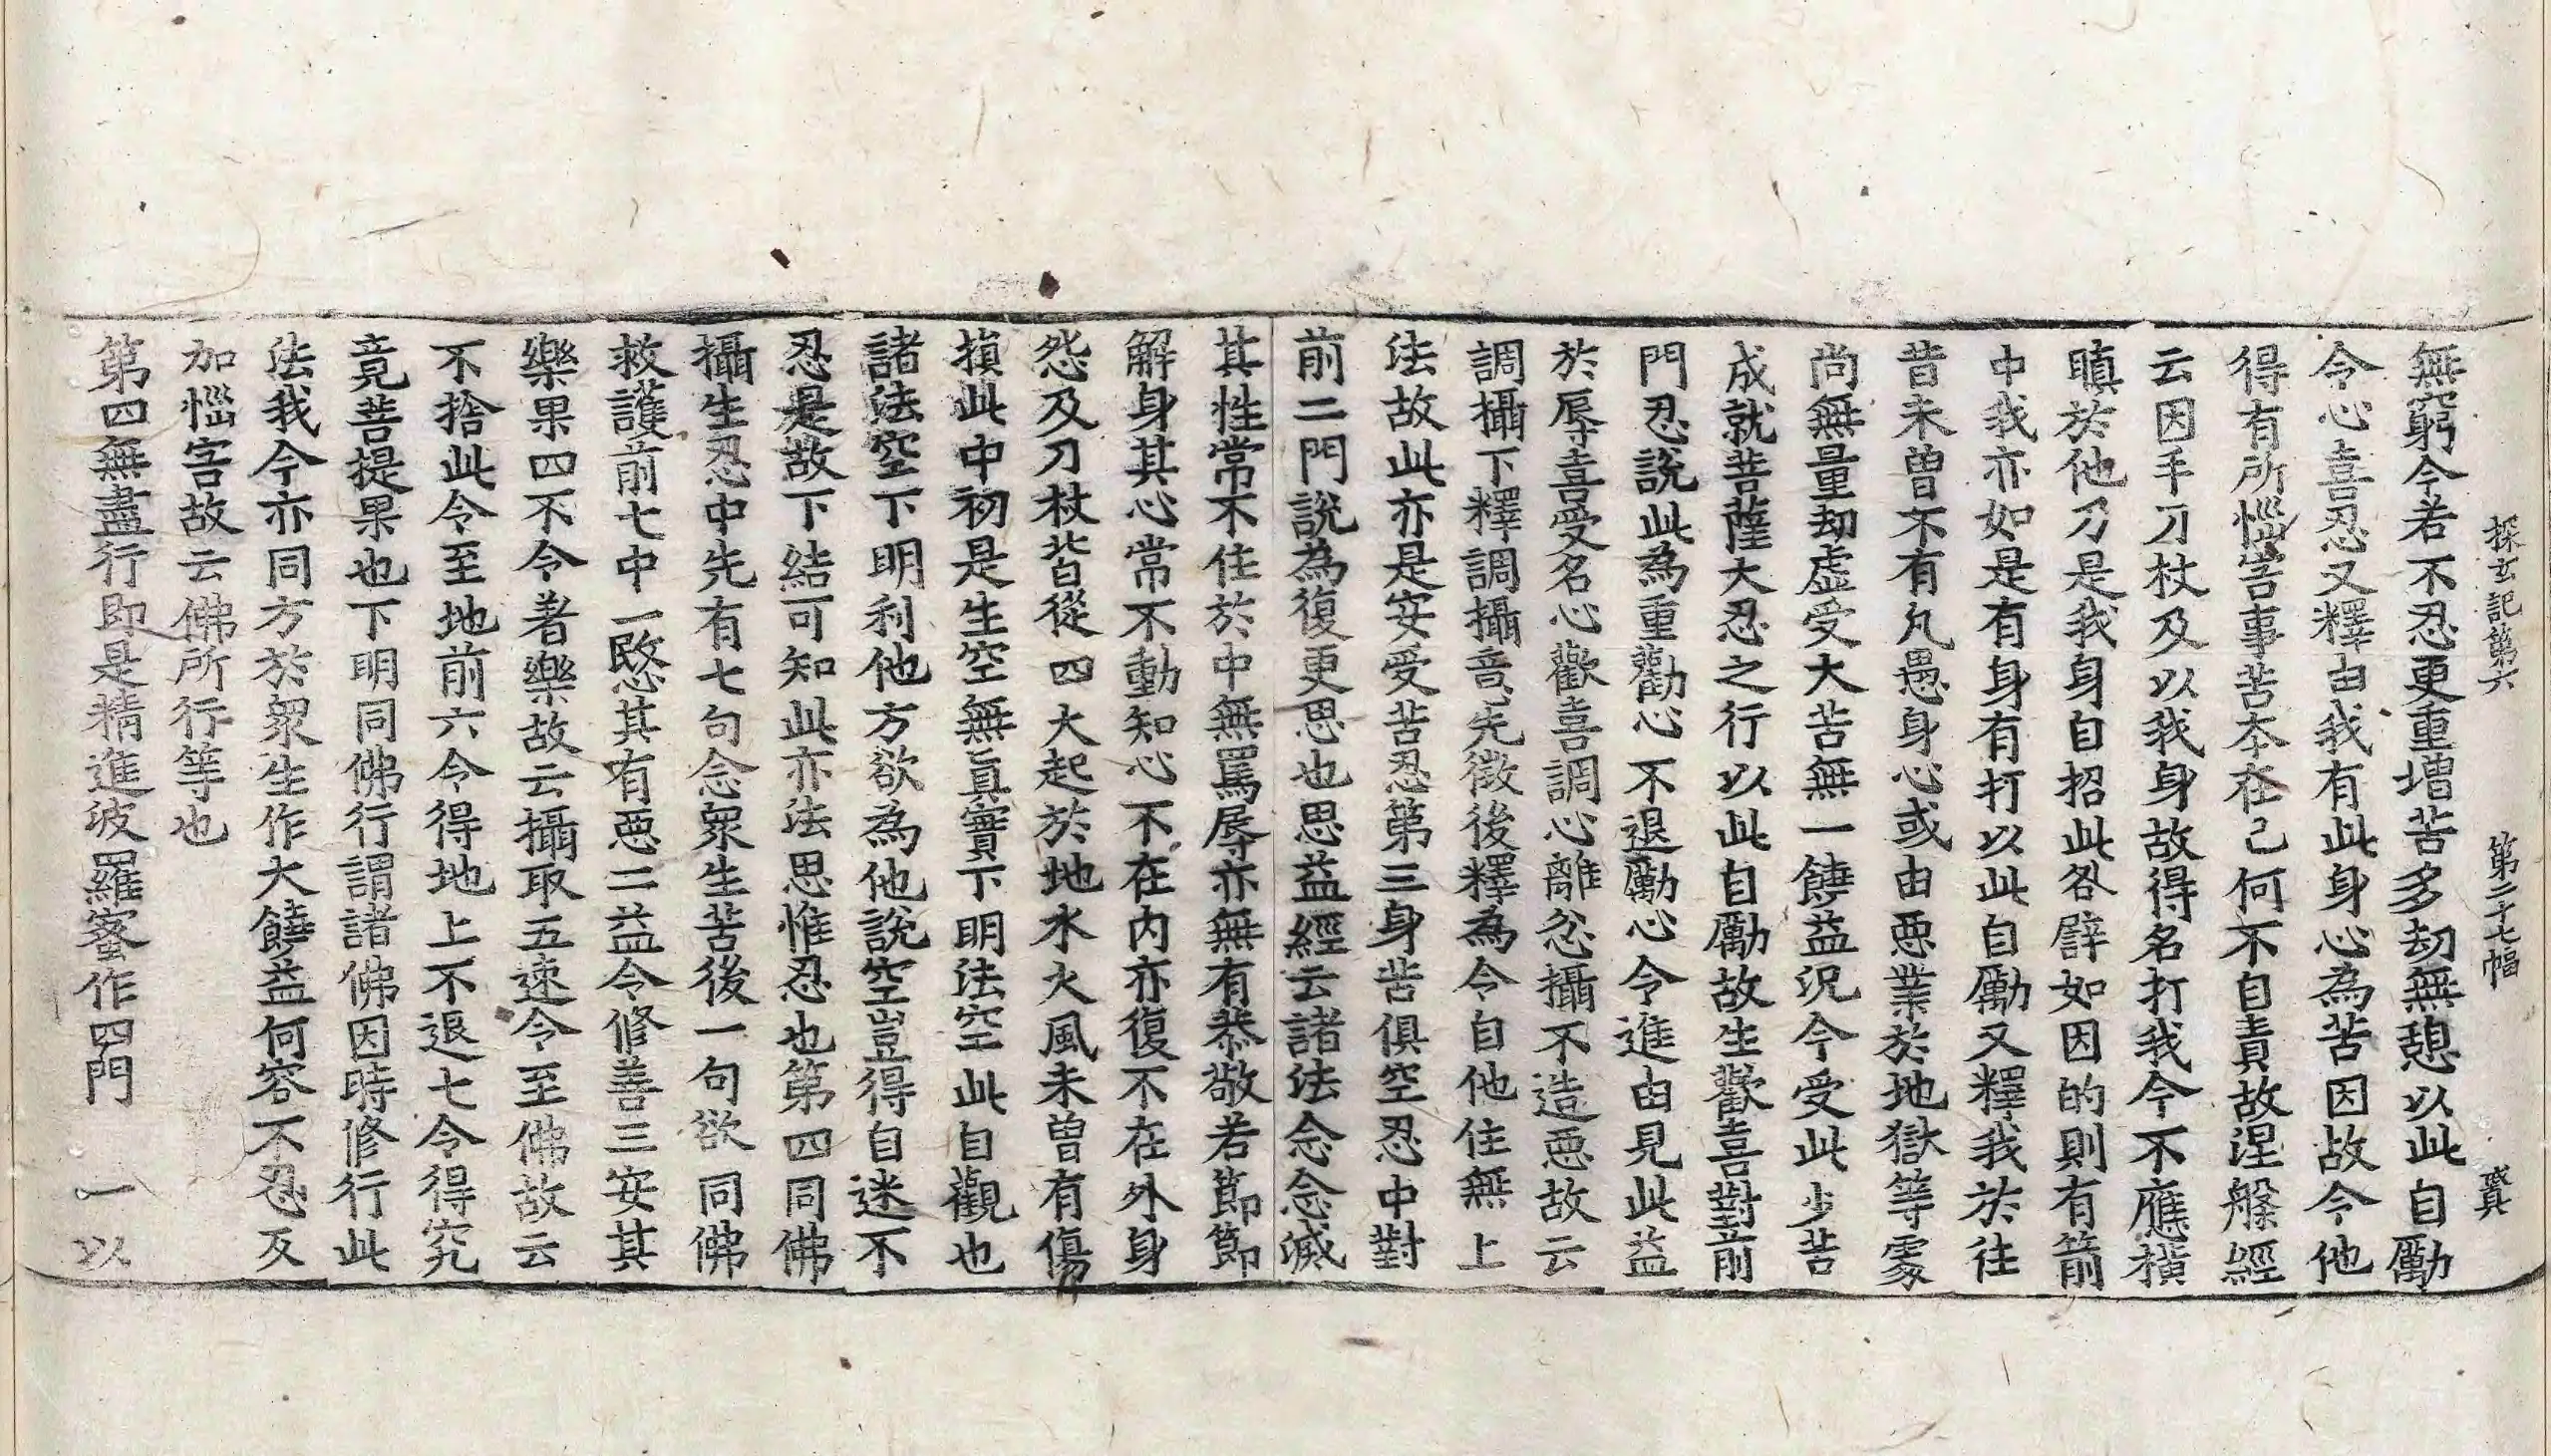 探玄記第六　第二十七幅　冀
無窮今若不忍更重增苦多劫無憩以此自勵
令心喜忍又釋由我有此身心為苦因故令他
得有所惱害事苦本在己何不自責故涅槃經
云因手刀杖及以我身故得名打我今不應橫
瞋於他刀是我身自招此咎譬如因的則有箭
中我亦如是有身有打以此自勵又釋我於往
昔未曾不有凡愚身心或由悪業於地獄等處
尚無量劫虛受大苦無一饒益況今受此少苦
成就菩薩大忍之行以此自勵故生歡喜對前
門忍說此為重勸心不退勵心令進由見此益
於辱喜受名心歡喜調心離忿攝不造悪故云
調攝下釋調攝意先徵後釋為令自他住無上
法故此亦是安受苦忍第三身苦俱空忍中對
前二門說為復更思也思益經云諸法念念滅
其性常不住於中無罵辱亦無有恭敬若節節
解身其心常不動知心不在内亦復不在外身
怨及刀杖皆從四大起於地水火風未曾有傷
損此中初是生空無真實下明法空此自觀也
諸法空下明利他方欲為他說空豈得自迷不
忍是故下結可知此亦法思惟忍也第四同佛
攝生忍中先有七句念眾生苦後一句欲同佛
救護前七中一愍其有悪二益令修善三安其
樂果四不令著樂故云攝取五速令至佛故云
不捨此令至地前六令得地上不退七令得究
竟菩提果也下明同佛行謂諸佛因時修行此
法我今亦同方於眾生作大饒益何容不忍反
加惱害故云佛所行等也
第四無盡行即是精進波羅蜜作四門　一以